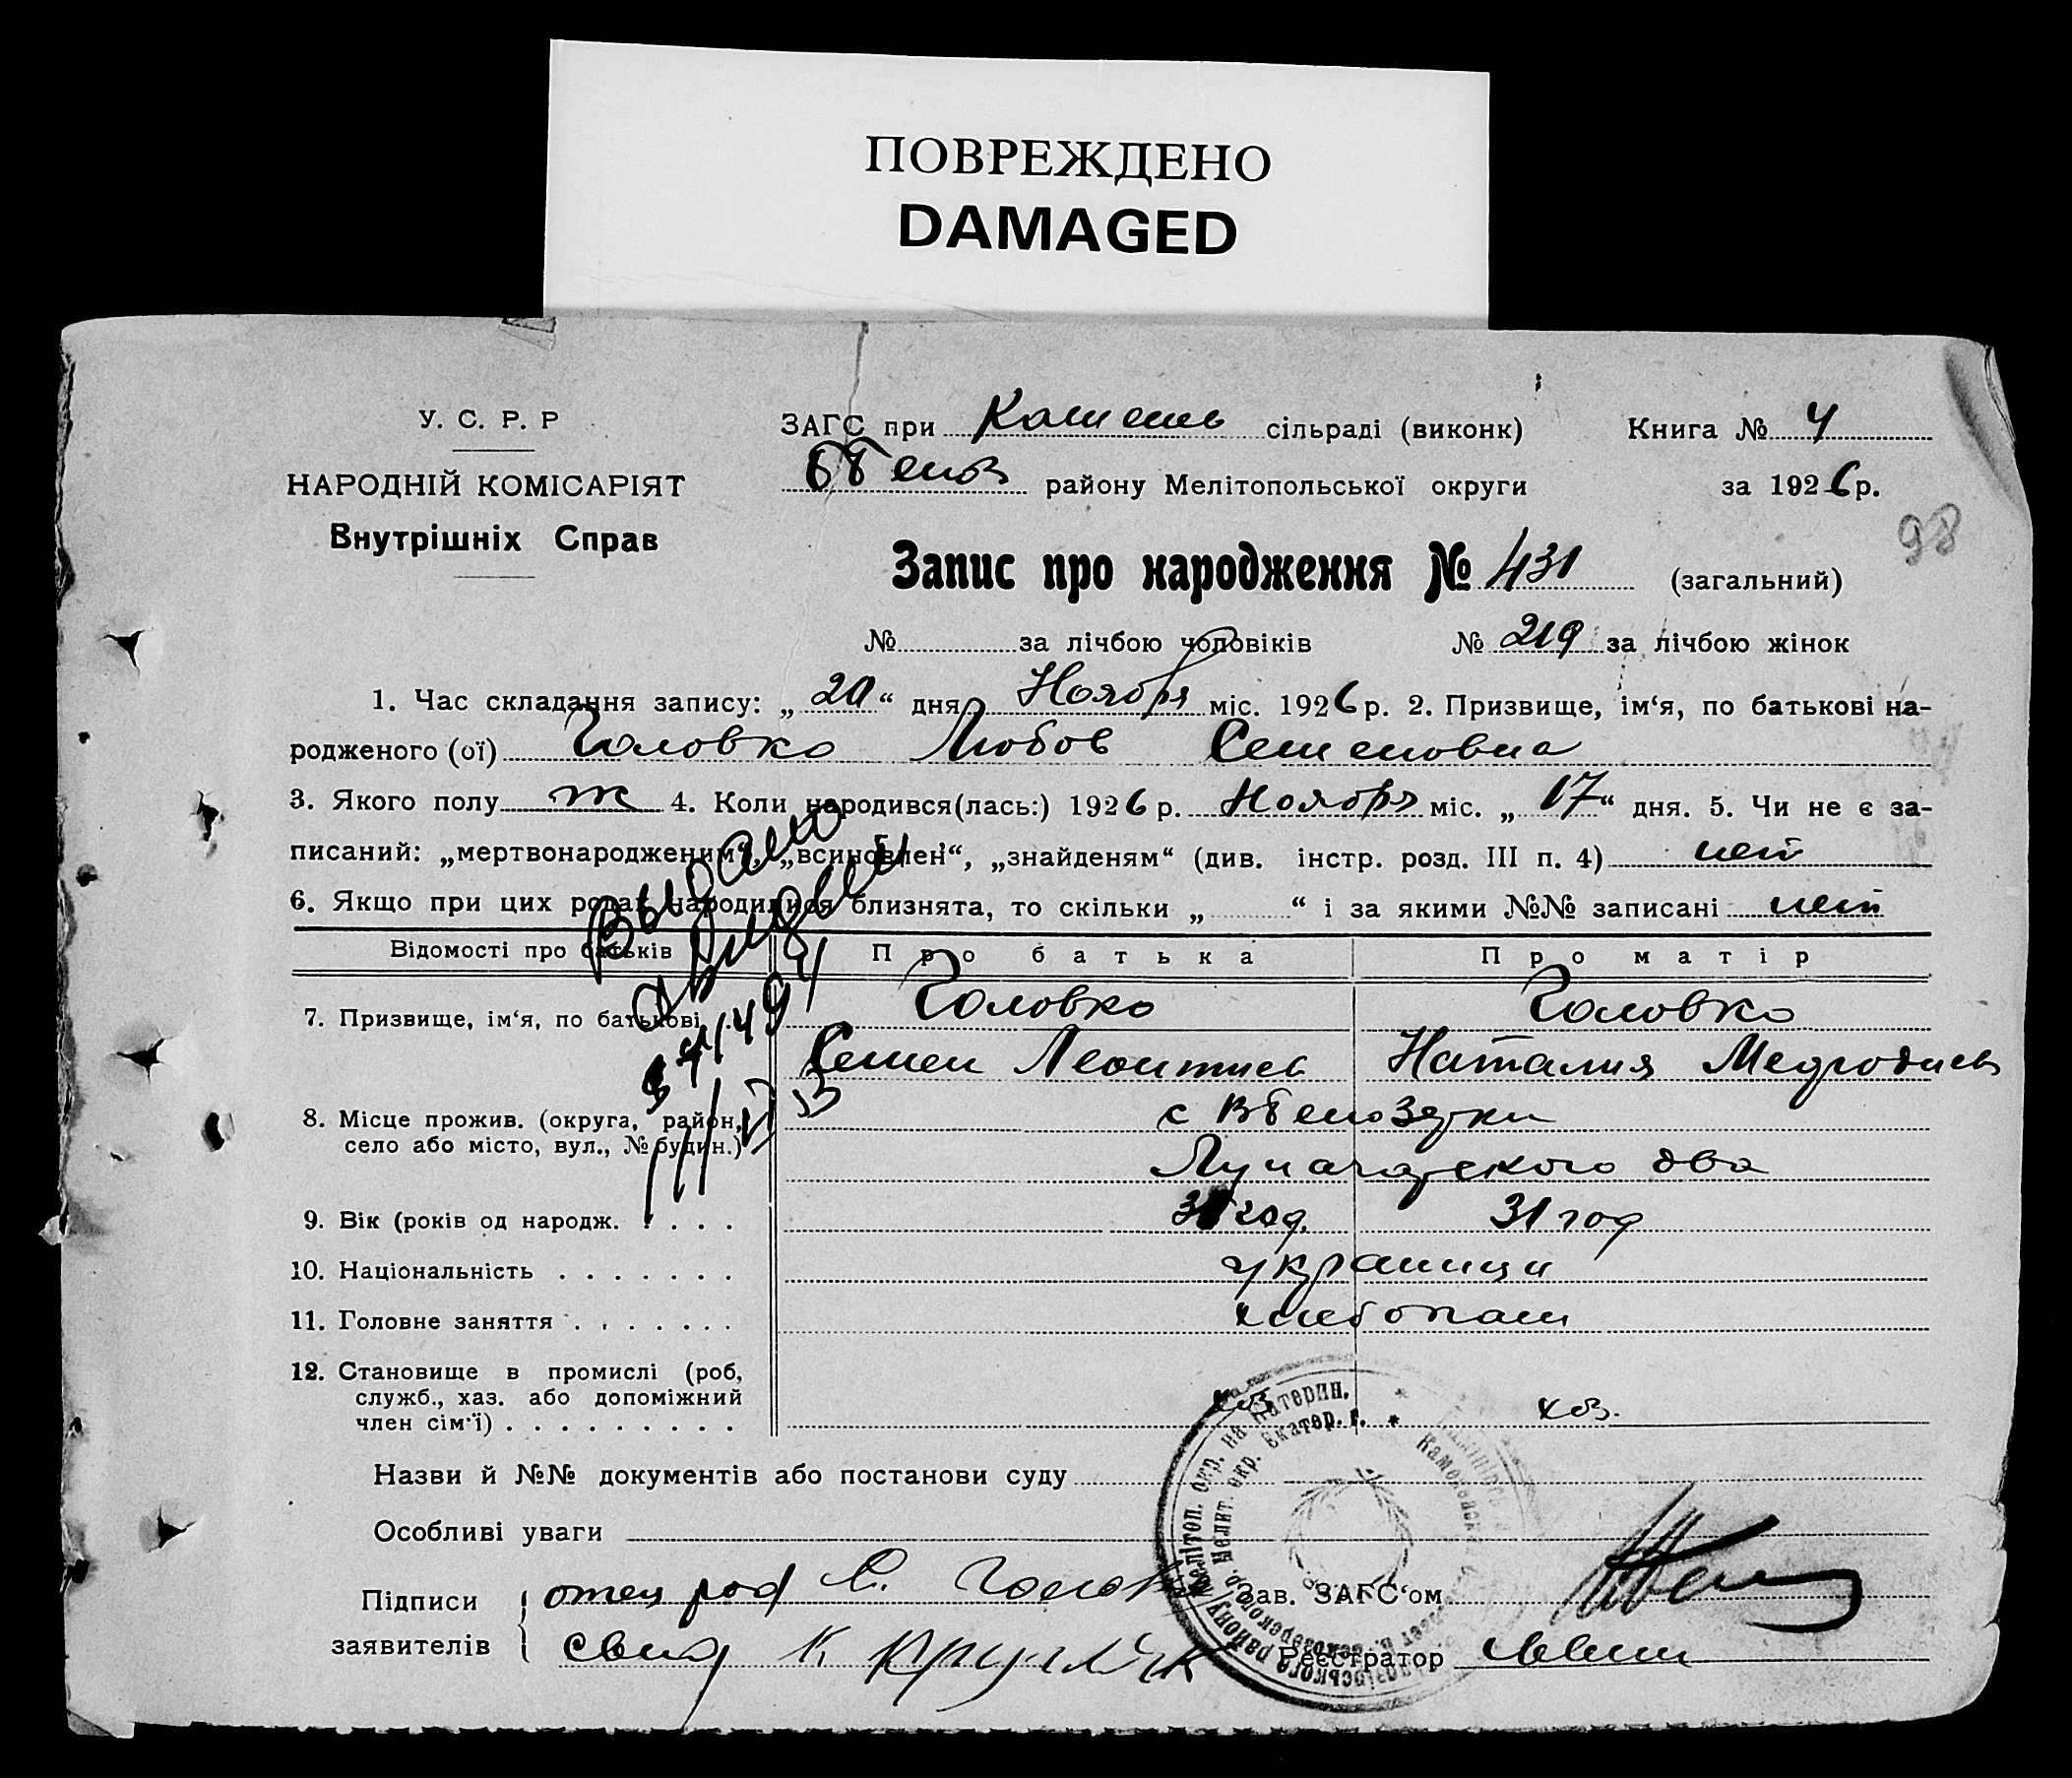 ПОВРЕЖДЕНО
DAMAGED
У. С. Р. Р
НАРОДНІЙ КОМІСАРІЯТ
Внутрішніх Справ
ЗАГС при Камень сільраді (виконк)
Книга № 4
району Мелітопольської округи
за 1926 р.
98
Запис про народження № 431 (загальний)
№ за лічбою чоловіків № 219 за лічбою жінок
1. Час складання запису: „ 20 “ дня Ноября міс. 1926 р. 2. Призвище, ім‘я, по батькові на-
родженого (ої) Головко Любов Семеновна
3. Якого полу ж 4. Коли народився(лась:) 1926 р. Ноября міс. „ 17 “ дня. 5. Чи не є за-
писаний: „мертвонародженим“, „всиновлен“, „знайденям“ (див. інстр. розд. III п. 4) нет
6. Якщо при цих родах народилися близнята, то скільки „ “ і за якими №№ записані нет
Выдано
Відомості про батьків
Про батька
Про матір
7. Призвище, ім‘я, по батькові
Головко
Головко
Семен Леонтиев
Наталия Мефодиев
8. Місце прожив. (округа, район,
село або місто, вул., № будин.)
Луначарского два
9. Вік (років од народж.
год.
31 год
10. Національність
украинци
11. Головне заняття
хлебопаш
12. Становище в промислі (роб,
служб., хаз. або допоміжний
член сім‘ї)
хоз
хоз.
Назви й №№ документів або постанови суду
Особливі уваги
Підписи
заявителів
отец С. Голов
К Кругляк
Зав. ЗАГС‘ом
Реєстратор